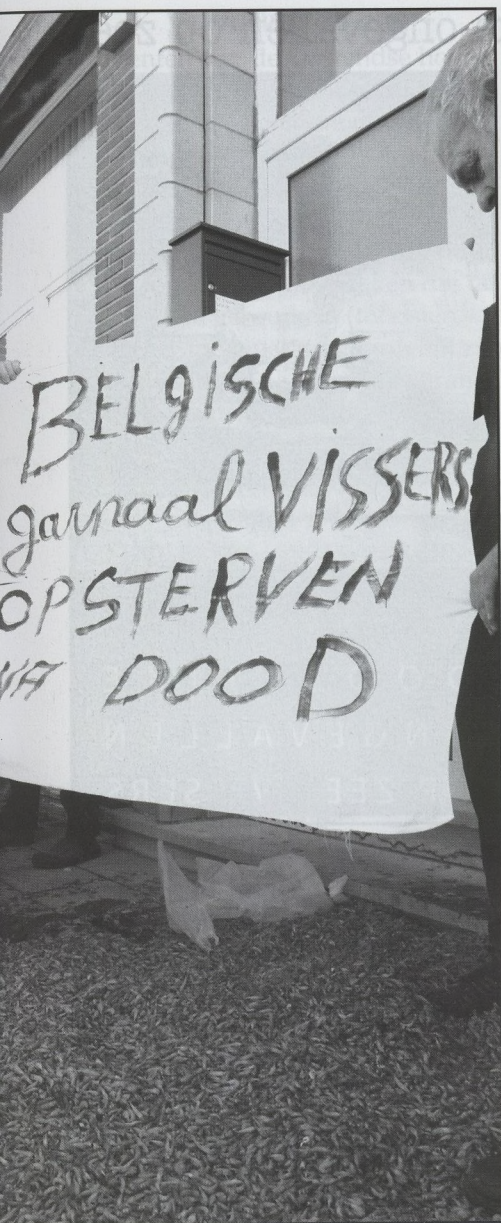 BELgiSCHE
garnaal VISSERS
OPSTERVEN
NA DOOD